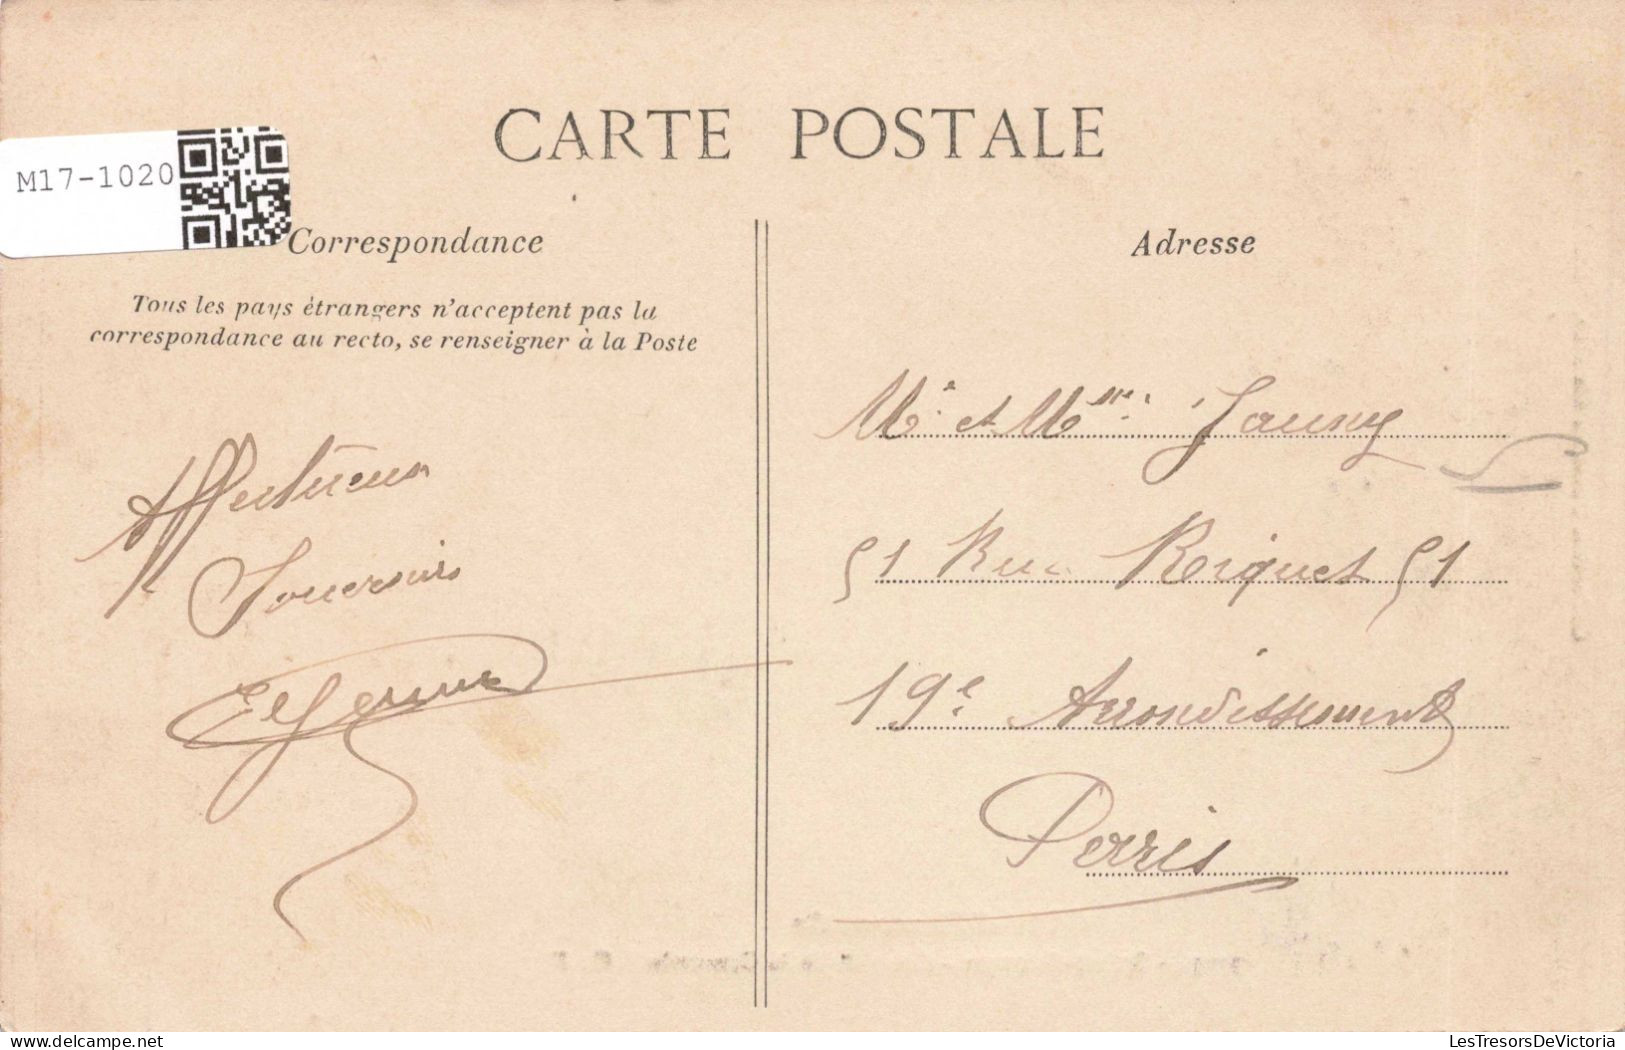 CARTE POSTALE
M17-1020
Correspondance
Adresse
Tous les pays étrangers n'acceptent pas la
correspondance au recto, se renseigner à la Poste
Affectueux
Souvenirs
Mr. et Mme. Jauny
51 Rue Reiquet 51
19e Arrondissement
Perris
LesTresorsDeVictoria